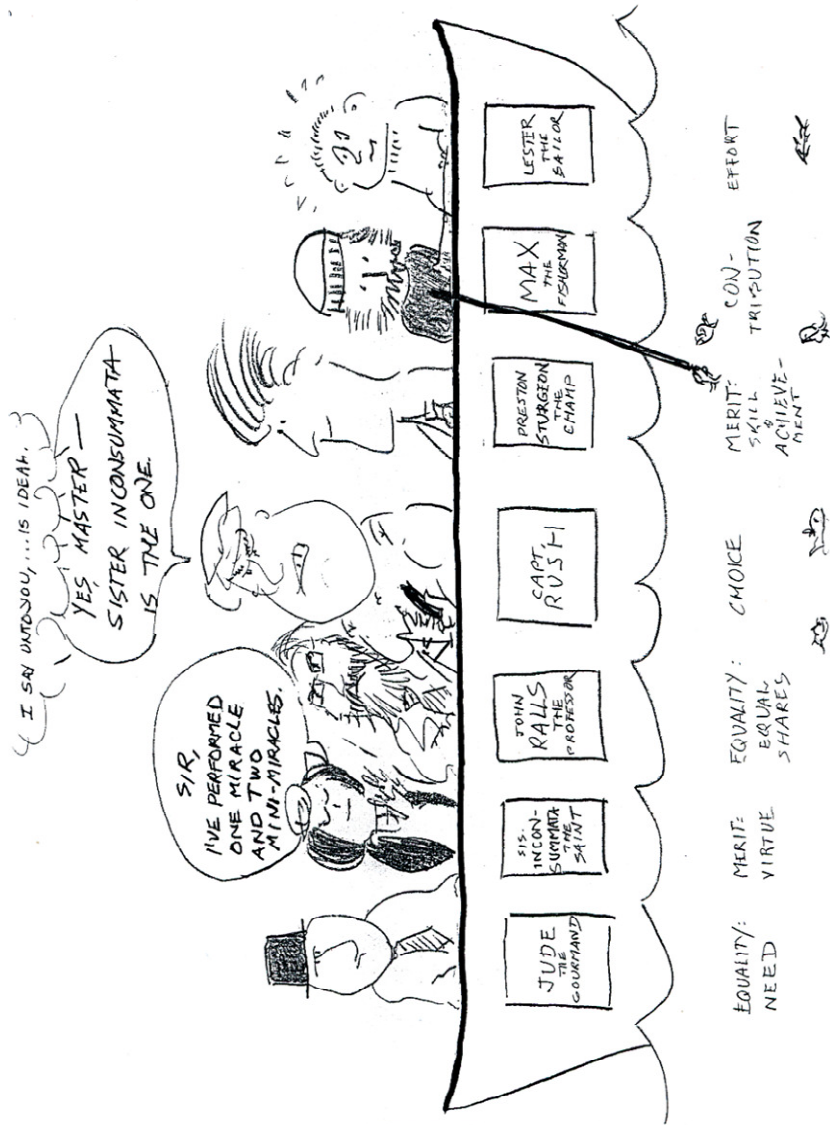 I SAY UNTO YOU,....IS IDEAL.
YES, MASTER —
SISTER INCONSUMMATA
IS THE ONE.
SIR,
I'VE PERFORMED
ONE MIRACLE
AND TWO
MINI-MIRACLES.
JUDE
THE
GOURMAND
SIS.
INCON-
SUMMATA
THE
SAINT
JOHN
RALLS
THE
PROFESSOR
CAPT.
RUSH
PRESTON
STURGEON
THE
CHAMP
MAX
THE
FISHERMAN
LESTER
THE
SAILOR
EQUALITY:
NEED
MERIT:
VIRTUE
EQUALITY:
EQUAL
SHARES
CHOICE
MERIT:
SKILL
&
ACHIEVE-
MENT
CON-
TRIBUTION
EFFORT